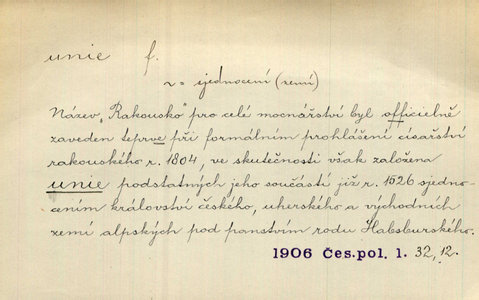 unie f.
~ = sjednocení (zemí)
Název „Rakousko" pro celé mocnářství byl officielně
zaveden teprve při formálním prohlášení císařství
rakouského r. 1804, ve skutečnosti však založena
unie podstatných jeho součástí již r. 1526 sjedno-
cením království českého, uherského a východních
zemí alpských pod panstvím rodu Habsburského.
1906 Čes. pol. 1. 32, 12.